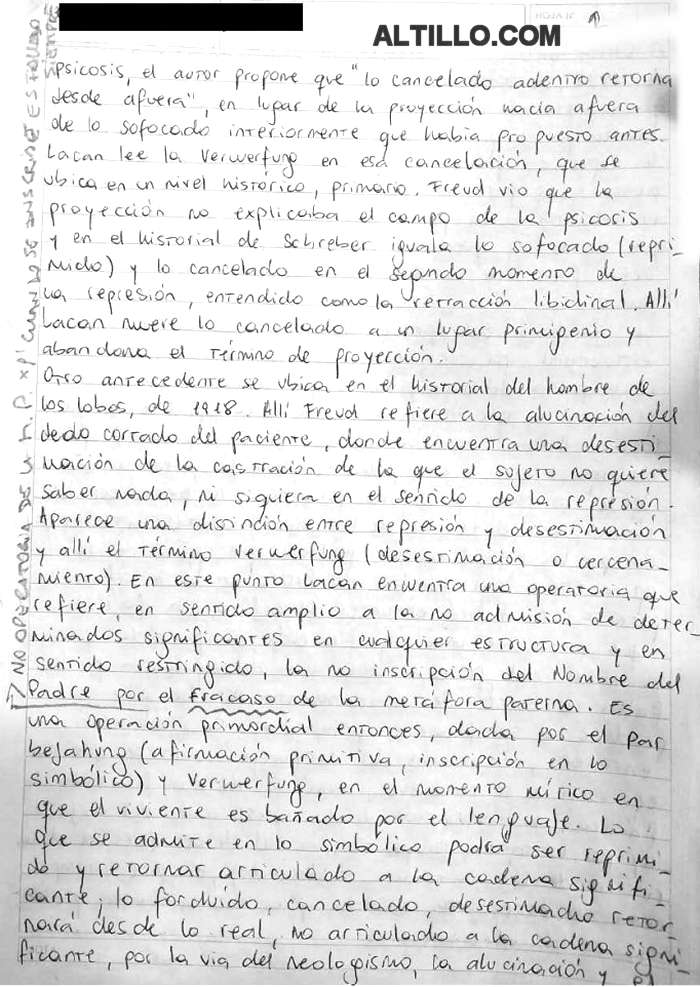 ALTILLO.COM
psicosis, el autor propone que "lo cancelado adentro retorna
desde afuera", en lugar de la proyección hacia afuera
de lo sofocado interiormente que había propuesto antes.
Lacan lee la Verwerfung en esa cancelación, que se
ubica en un nivel histórico, primario. Freud vio que la
proyección no explicaba el campo de la psicosis
y en el historial de Schreber iguala lo sofocado (repri-
mido) y lo cancelado en el segundo momento de
la represión, entendido como la retracción libidinal. Allí
Lacan mueve lo cancelado a un lugar primigenio y
abandona el término de proyección.
Otro antecedente se ubica en el historial del hombre de
los lobos, de 1918. Allí Freud refiere a la alucinación del
dedo cortado del paciente, donde encuentra una desesti-
mación de la castración de la que el sujeto no quiere
saber nada, ni siquiera en el sentido de la represión.
Aparece una distinción entre represión y desestimación
y allí el término Verwerfung (desestimación o cercena-
miento). En este punto Lacan encuentra una operatoria que
refiere, en sentido amplio a la no admisión de deter
minados significantes en cualquier estructura y en
sentido restringido, la no inscripción del Nombre del
Padre por el fracaso de la metáfora paterna. Es
una operación primordial entonces, dada por el par
bejahung (afirmación primitiva, inscripción en lo
simbólico) y Verwerfung, en el momento mítico en
que el viviente es bañado por el lenguaje. Lo
que se admite en lo simbólico podrá ser reprimi-
do y retornar articulado a la cadena signifi-
cante; lo forcluido, cancelado, desestimado retor
nará desde lo real, no articulado a la cadena signi-
ficante, por la vía del neologismo, la alucinación y el
NO OPERATORIA DE N.P. xq' CUANDO SE INSCRIBE ES FALLIDO
SIEMPRE